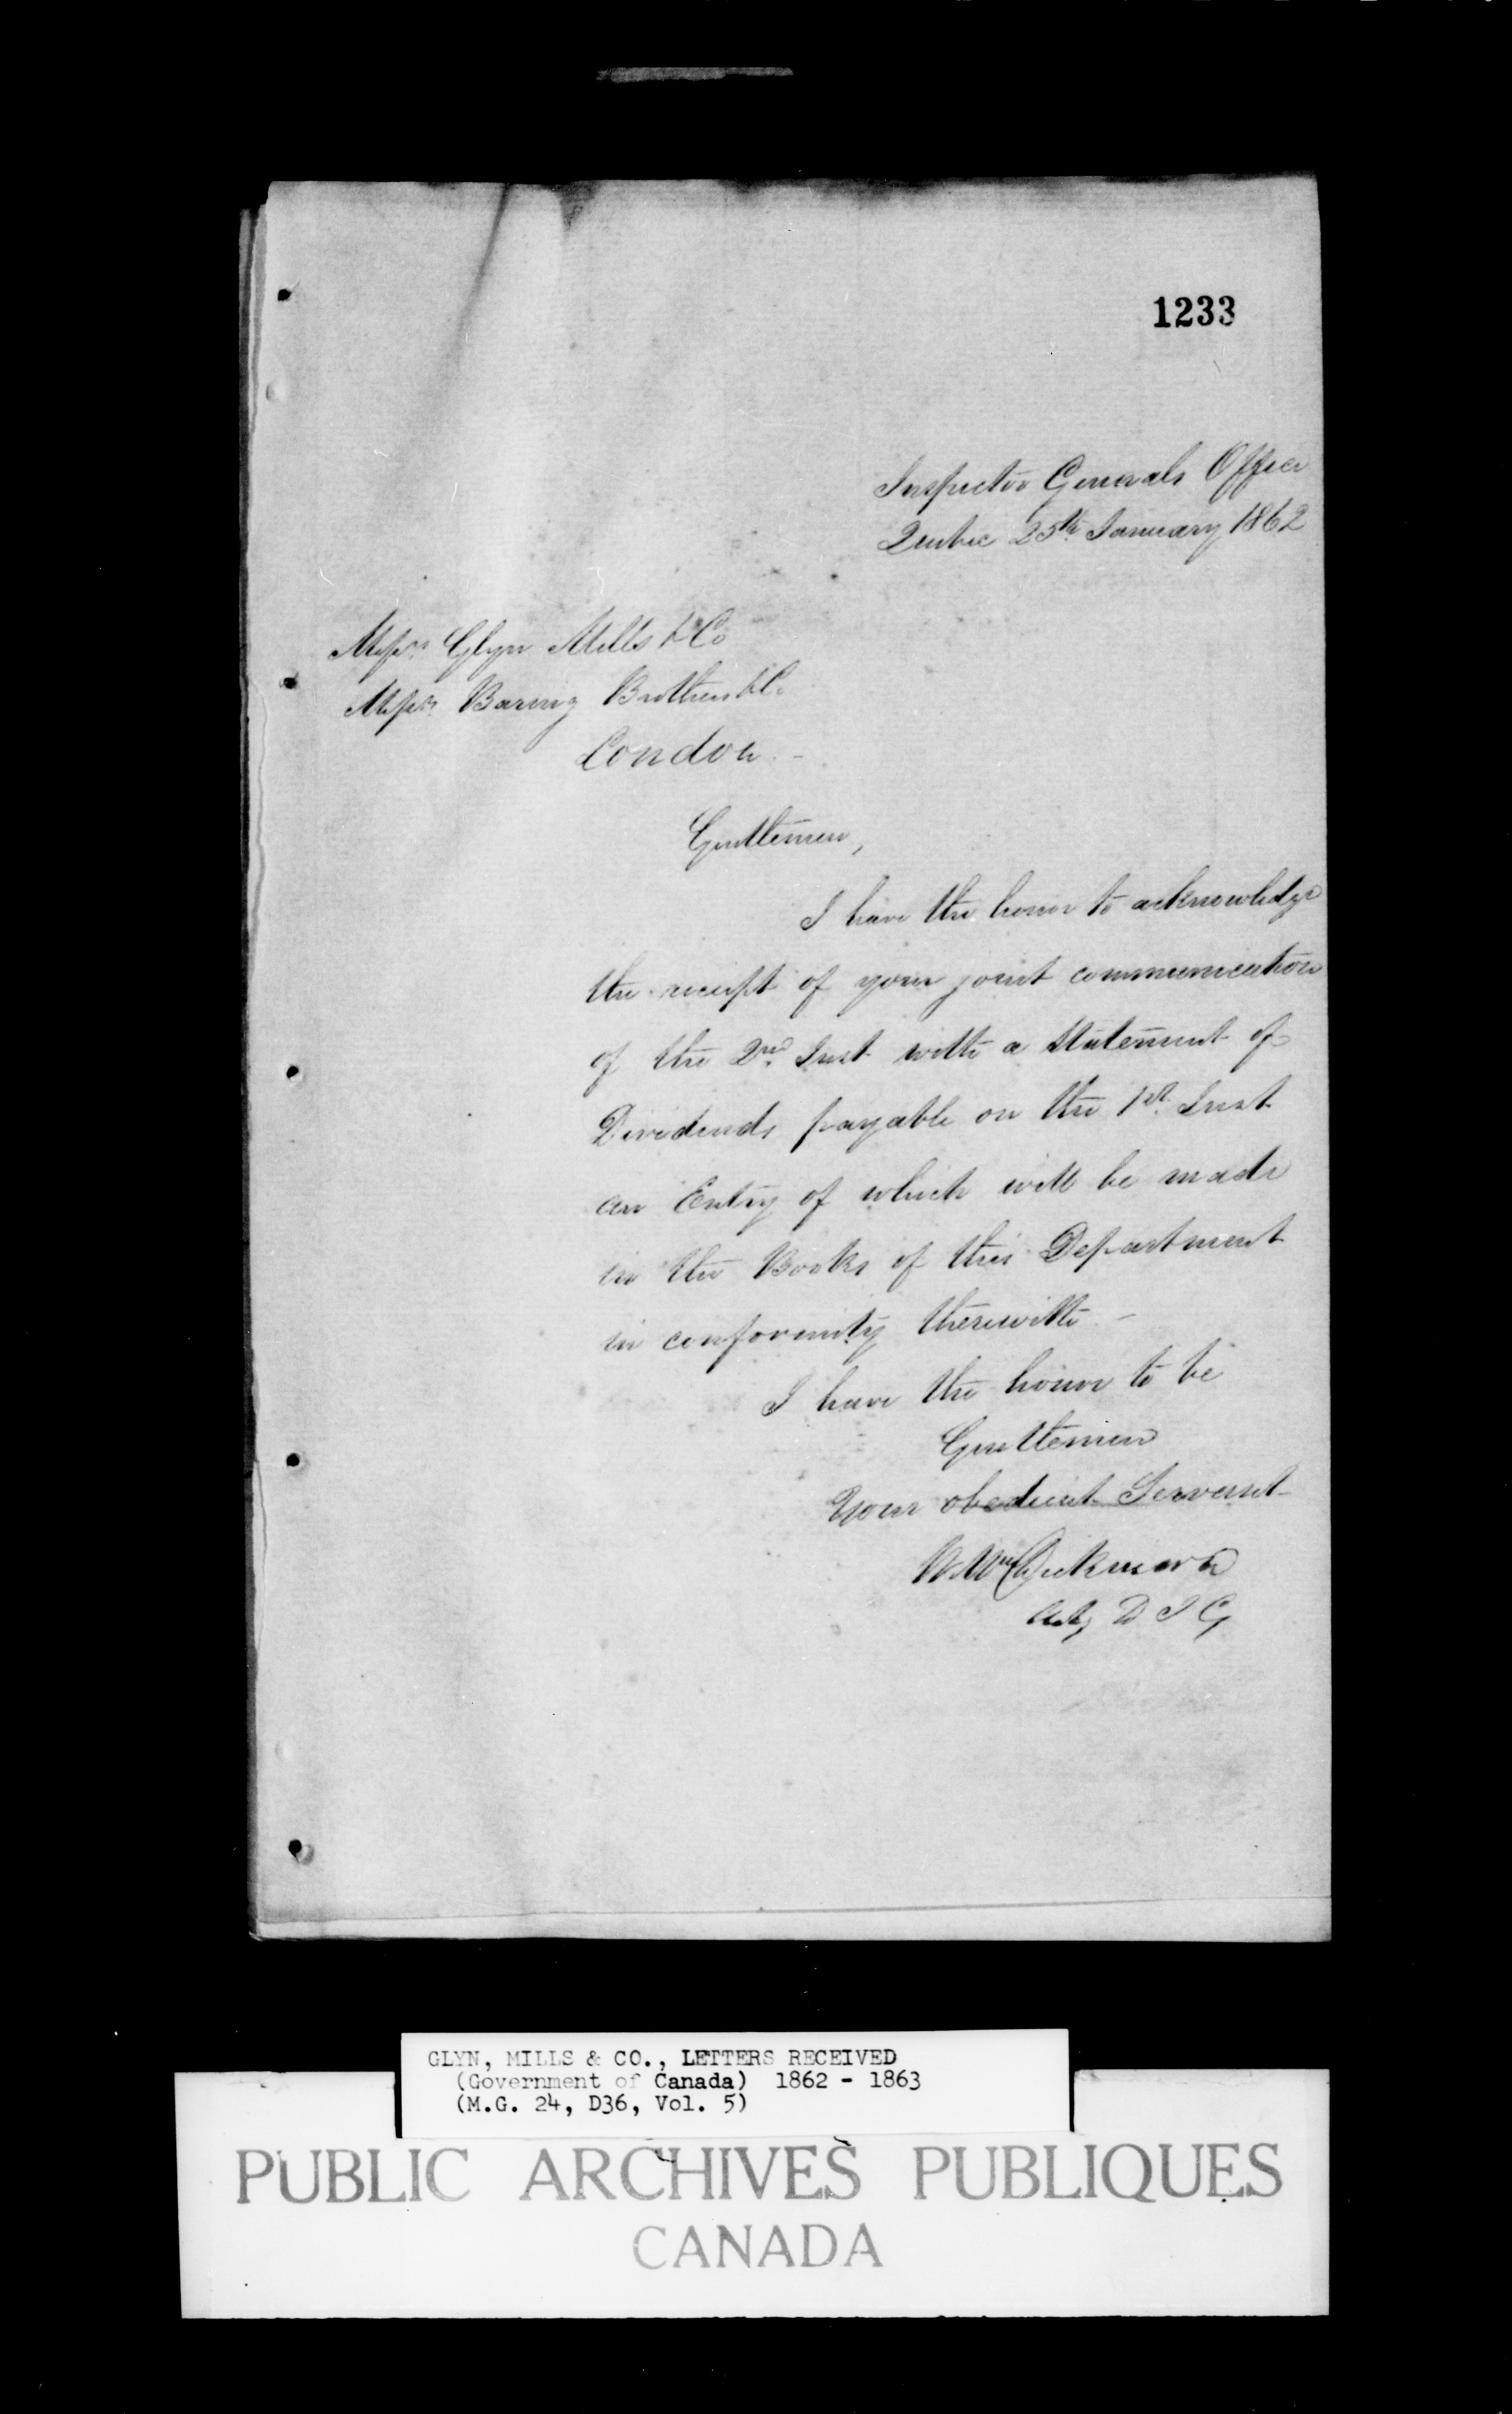 1233
Inspector Generals Office
Quebec 25th January 1862
Messrs Glyn Mills & Co
Messrs Baring Brothers & Co
London. -
Gentlemen,
I have the honor to acknowledge
the receipt of your joint communication
of the 2nd Inst with a Statement of
Dividends payable on the 1st Inst
an Entry of which will be made
in the Books of this Department
in conformity therewith -
I have the honor to be
Gentlemen
Your obedient Servant
Wm Dickinson
Actg D I G
GLYN, MILLS & CO., LETTERS RECEIVED
(Government of Canada) 1862 - 1863
(M.G. 24, D36, Vol. 5)
PUBLIC ARCHIVES PUBLIQUES
CANADA